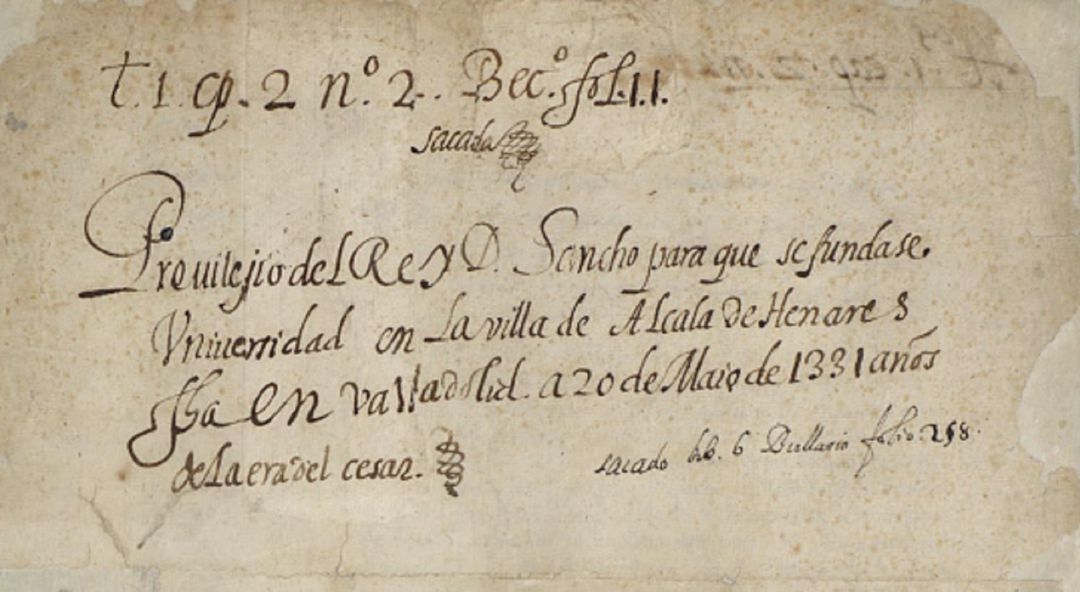 t. 1. cp. 2 nº. 2.. Becº. fol. 11.
sacada
Preuilejio del Rey D. Sancho para que se fundase.
Vniuersidad en La villa de Alcala de Henares
fha en valladolid. a 20 de Maio de 1331 años
de La era del cesar.
sacado lib. 6 Bullario folio. 258.